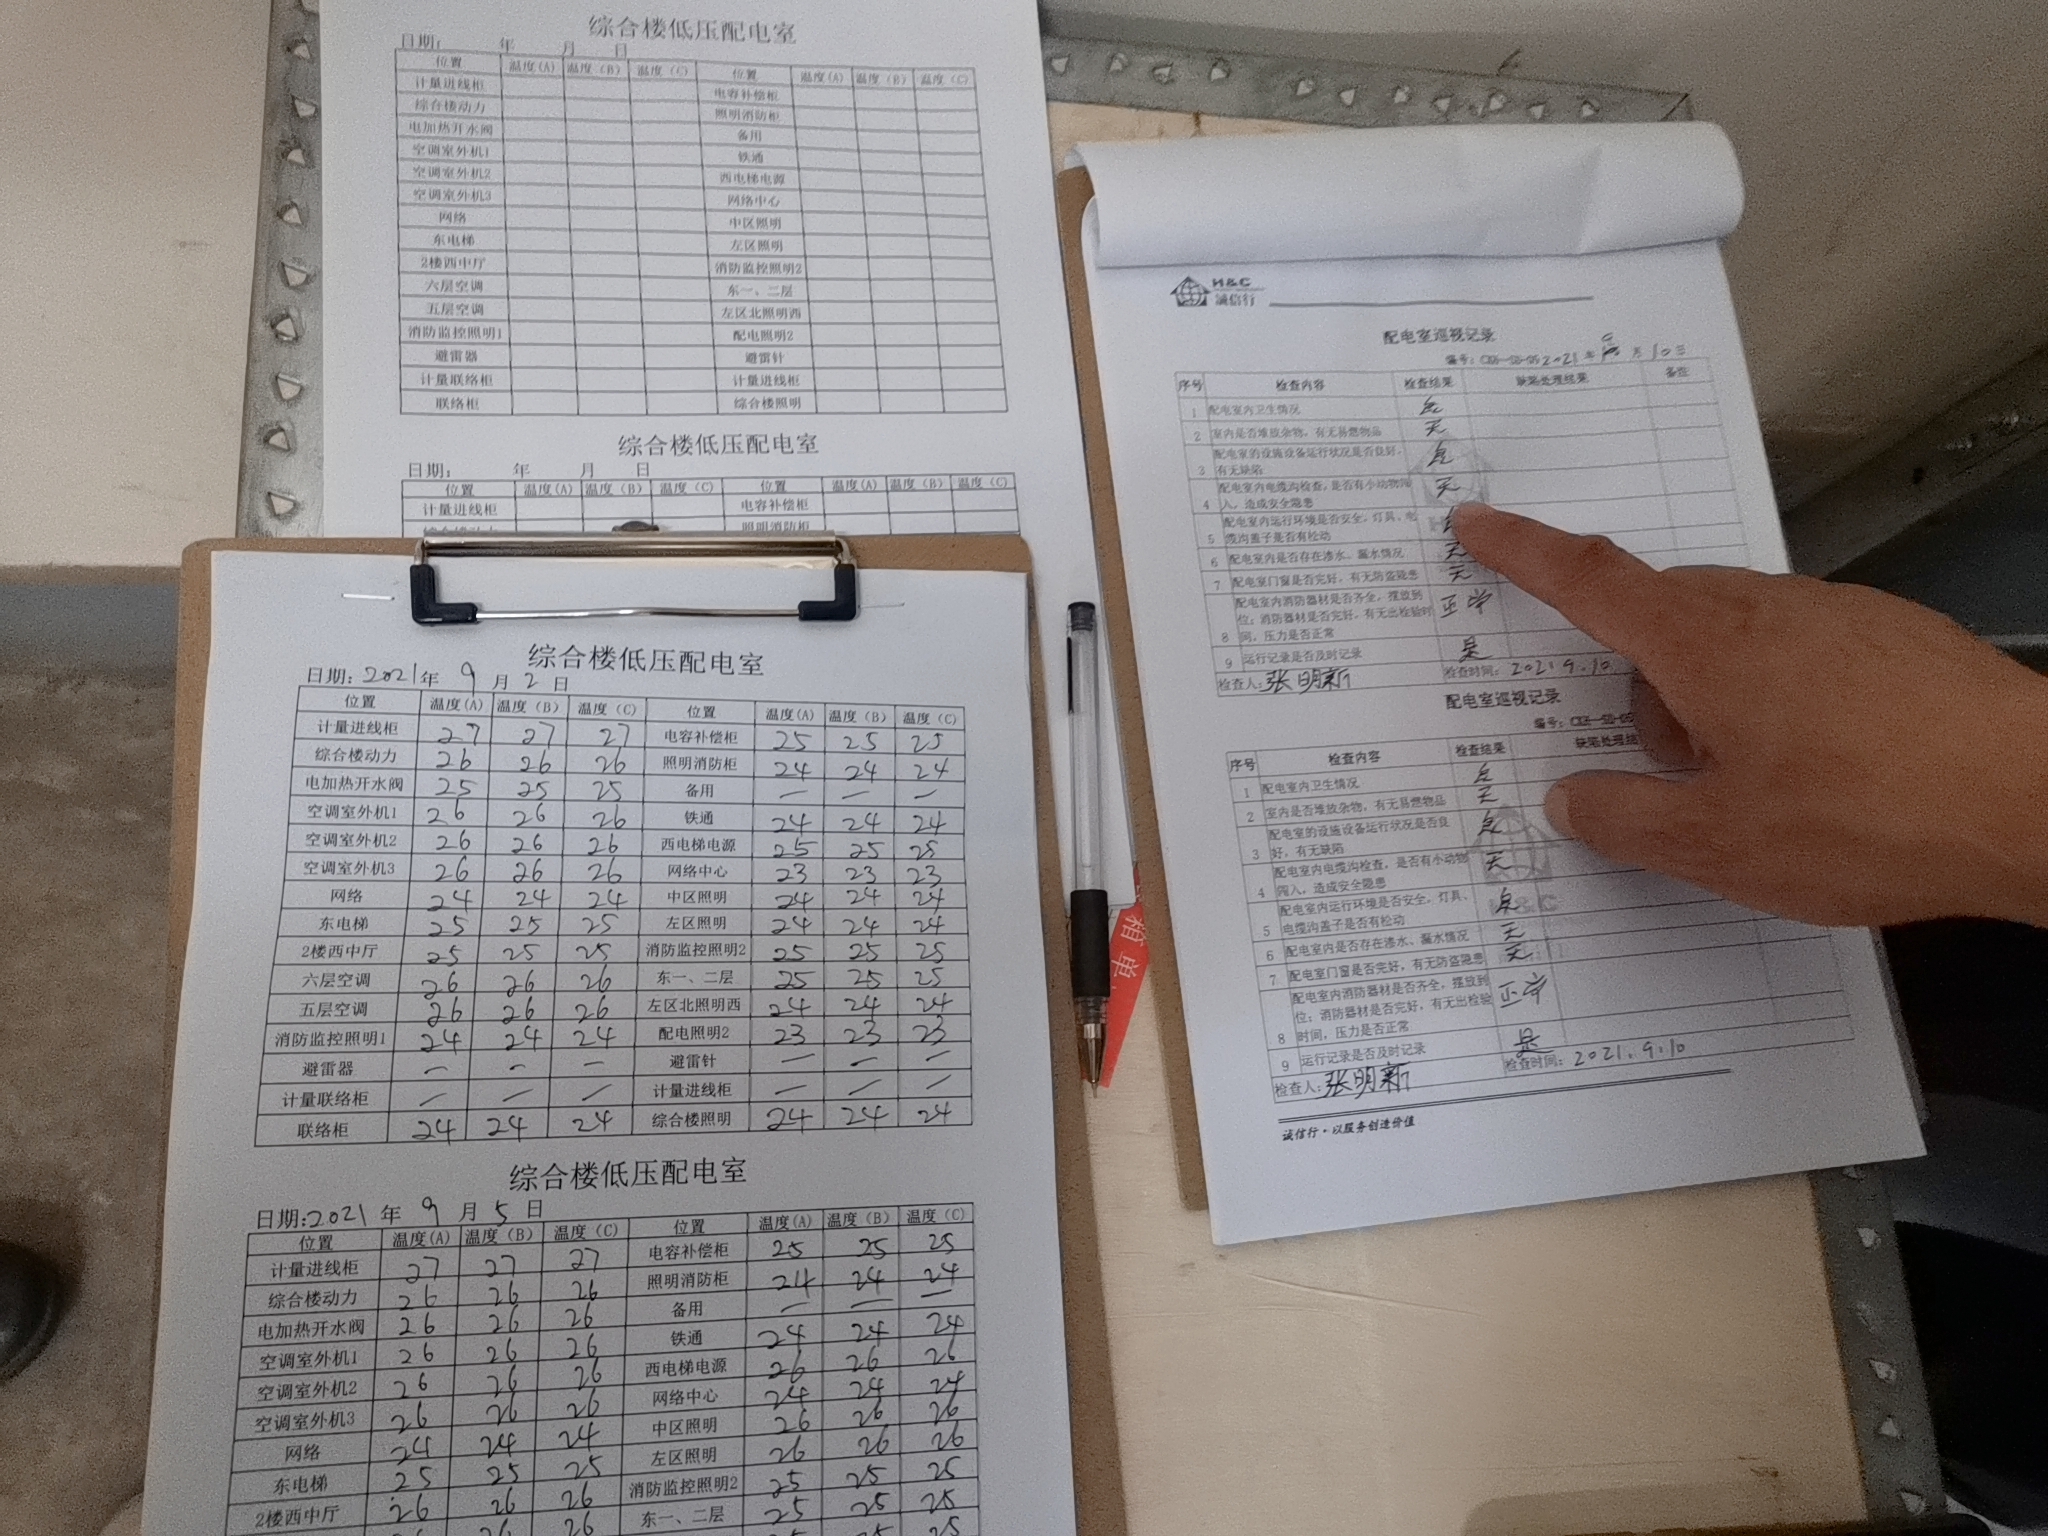 综合楼低压配电室
日期： 年 月 日
位置 温度(A) 温度（B） 温度（C） 位置 温度(A) 温度（B） 温度（C）
计量进线柜 电容补偿柜
综合楼动力 照明消防柜
电加热开水阀 备用
空调室外机1 铁通
空调室外机2 西电梯电源
空调室外机3 网络中心
网络 中区照明
东电梯 左区照明
2楼西中厅 消防监控照明2
六层空调 东一、二层
五层空调 左区北照明西
消防监控照明1 配电照明2
避雷器 避雷针
计量联络柜 计量进线柜
联络柜 综合楼照明
综合楼低压配电室
日期： 年 月 日
位置 温度(A) 温度（B） 温度（C） 位置 温度(A) 温度（B） 温度（C）
计量进线柜 电容补偿柜
综合楼动力 照明消防柜
综合楼低压配电室
日期：2021年 9 月 2 日
位置 温度(A) 温度（B） 温度（C） 位置 温度(A) 温度（B） 温度（C）
计量进线柜 27 27 27 电容补偿柜 25 25 25
综合楼动力 26 26 26 照明消防柜 24 24 24
电加热开水阀 25 25 25 备用 — — —
空调室外机1 26 26 26 铁通 24 24 24
空调室外机2 26 26 26 西电梯电源 25 25 25
空调室外机3 26 26 26 网络中心 23 23 23
网络 24 24 24 中区照明 24 24 24
东电梯 25 25 25 左区照明 24 24 24
2楼西中厅 25 25 25 消防监控照明2 25 25 25
六层空调 26 26 26 东一、二层 25 25 25
五层空调 26 26 26 左区北照明西 24 24 24
消防监控照明1 24 24 24 配电照明2 23 23 23
避雷器 — — — 避雷针 — — —
计量联络柜 — — — 计量进线柜 — — —
联络柜 24 24 24 综合楼照明 24 24 24
综合楼低压配电室
日期：2021 年 9 月 5 日
位置 温度(A) 温度（B） 温度（C） 位置 温度(A) 温度（B） 温度（C）
计量进线柜 27 27 27 电容补偿柜 25 25 25
综合楼动力 26 26 26 照明消防柜 24 24 24
电加热开水阀 26 26 26 备用 — — —
空调室外机1 26 26 26 铁通 24 24 24
空调室外机2 26 26 26 西电梯电源 26 26 26
空调室外机3 26 26 26 网络中心 24 24 24
网络 24 24 24 中区照明 26 26 26
东电梯 25 25 25 左区照明 26 26 26
2楼西中厅 26 26 26 消防监控照明2 25 25 25
东一、二层 25 25 25
箱单
H&C
誠信行
配电室巡视记录
编号：CXH-SB-05 2021 年 月 10日
序号 检查内容 检查结果 缺陷处理结果 备注
1 配电室内卫生情况 良
2 室内是否堆放杂物，有无易燃物品 无
3 配电室的设施设备运行状况是否良好，有无缺陷 良
4 配电室内电缆沟检查，是否有小动物闯入，造成安全隐患 无
5 配电室内运行环境是否安全，灯具、电缆沟盖子是否有松动
6 配电室内是否存在渗水、漏水情况 无
7 配电室门窗是否完好，有无防盗隐患 无
8 配电室内消防器材是否齐全，摆放到位；消防器材是否完好，有无出检验时间，压力是否正常 正常
9 运行记录是否及时记录 是
检查人：张明新 检查时间：2021 9.10
配电室巡视记录
编号：CXH-SB-05
序号 检查内容 检查结果 缺陷处理结
1 配电室内卫生情况 良
2 室内是否堆放杂物，有无易燃物品 无
3 配电室的设施设备运行状况是否良好，有无缺陷 良
4 配电室内电缆沟检查，是否有小动物闯入，造成安全隐患 无
5 配电室内运行环境是否安全，灯具、电缆沟盖子是否有松动 良
6 配电室内是否存在渗水、漏水情况 无
7 配电室门窗是否完好，有无防盗隐患 无
8 配电室内消防器材是否齐全，摆放到位；消防器材是否完好，有无出检验时间，压力是否正常 正常
9 运行记录是否及时记录 是
检查人：张明新 检查时间：2021.9.10
诚信行·以服务创造价值